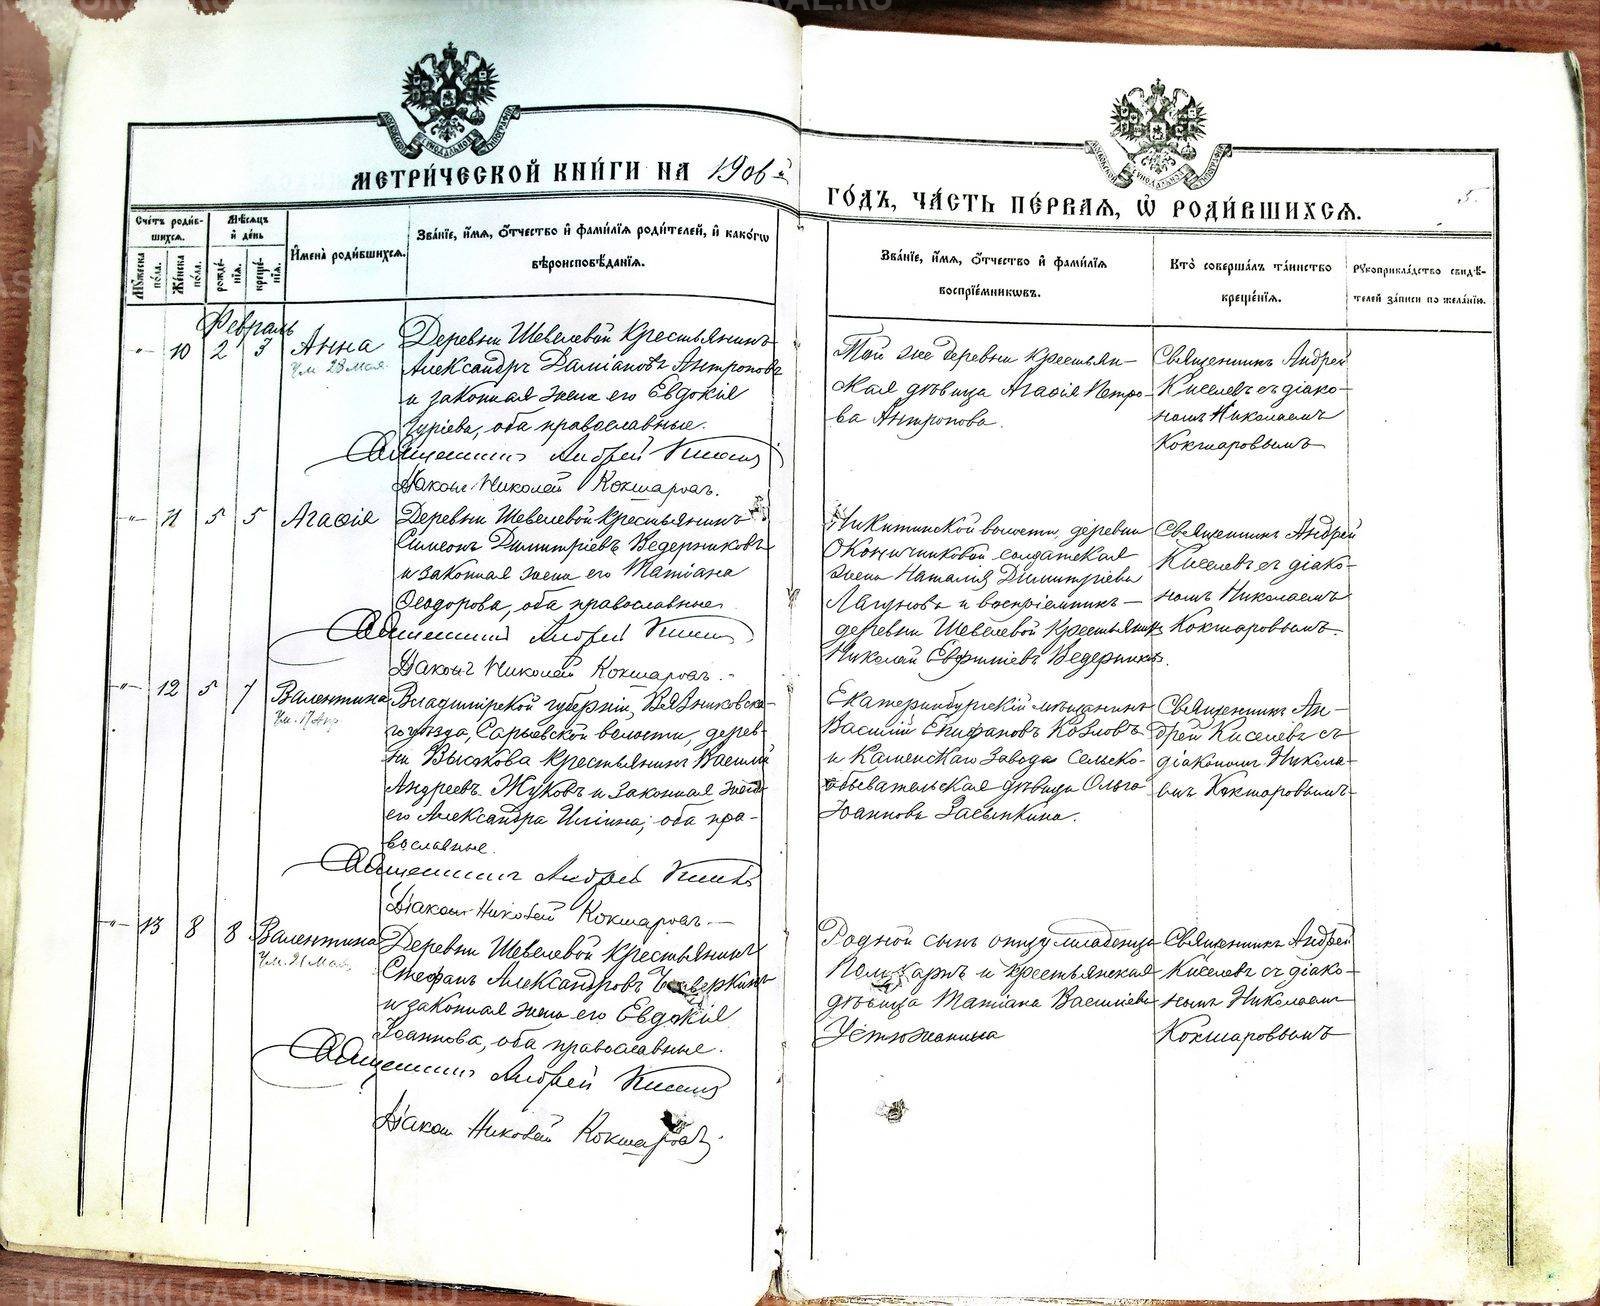 METRIKI.GASO-URAL.RU
МЕТРИ́ЧЕСКОЙ КНИ́ГИ НА 1906 й
ГО́ДЪ, ЧА́СТЬ ПЕ́РВАѦ, Ѡ҆ РОДИ́ВШИХСѦ.
5.
Сче́тъ роди́в-
шихсѧ.
Мѣ́сѧцъ
и҆ де́нь
Мꙋ́жеска по́ла.
Же́нска по́ла.
рожде́-
нїѧ.
креще́-
нїѧ.
И҆мена̀ роди́вшихсѧ.
Зва́нїе, и҆́мѧ, ѻ҆́тчество и҆ фами́лїѧ роди́телей, и҆ како́гѡ
вѣроисповѣ́данїѧ.
Зва́нїе, и҆́мѧ, ѻ҆́тчество и҆ фами́лїѧ
воспрїе́мникѡвъ.
Кто̀ соверша́лъ та́инство
креще́нїѧ.
Рꙋкоприкла́дство свидѣ́-
телей за́писи по жела́нїю.
Февраль
-"- 10 2 3 Анна
Ум 23 мая
Деревни Шевелевой крестьянинъ
Александръ Даміановъ Антроповъ
и законная жена его Евдокія
Гуріева, оба православные.
Священникъ Андрей Киселевъ
Діаконъ Николай Кокшаровъ.
Той же деревни крестьян-
ская дѣвица Агафія Петро-
ва Антропова.
Священникъ Андрей
Киселевъ съ діако-
номъ Николаемъ
Кокшаровымъ
-"- 11 5 5 Агафія
Деревни Шевелевой крестьянинъ
Симеонъ Димитріевъ Ведерниковъ
и законная жена его Татіана
Ѳеодорова, оба православные.
Священникъ Андрей Киселевъ
Діаконъ Николай Кокшаровъ.
Никитинской волости, деревни
солдатская
жена Наталія Димитріева
Лагунова и воспріемникъ —
деревни Шевелевой крестьянинъ
Николай Евфиміевъ Ведерниковъ.
Священникъ Андрей
Киселевъ съ діако-
номъ Николаемъ
Кокшаровымъ.
-"- 12 5 7 Валентина
Ум. 17 Апр
Владимірской губерніи, Вязниковска-
го уѣзда, Сарыевской волости, дерев-
ни Высокова крестьянинъ Василій
Андреевъ Жуковъ и законная жена
его Александра Иліина, оба пра-
вославные.
Священникъ Андрей Киселевъ
Діаконъ Николай Кокшаровъ.
Екатеринбургскій мѣщанинъ
Василій Епифановъ Козловъ
и Каменскаго Завода сельско-
обывательская дѣвица Ольга
Іоаннова Засыпкина.
Священникъ Ан-
дрей Киселевъ съ
діакономъ Никола-
емъ Кокшаровымъ
-"- 13 8 8 Валентина
Ум. 21 Мая
Деревни Шевелевой крестьянинъ
Стефанъ Александровъ
и законная жена его Евдокія
Іоаннова, оба православные.
Священникъ Андрей Киселевъ
Діаконъ Николай Кокшаровъ.
Родной сынъ отцу младенца
Поликарпъ и крестьянская
дѣвица Татіана Василіева
Устюжанина
Священникъ Андрей
Киселевъ съ діако-
номъ Николаемъ
Кокшаровымъ
METRIKI.GASO-URAL.RU